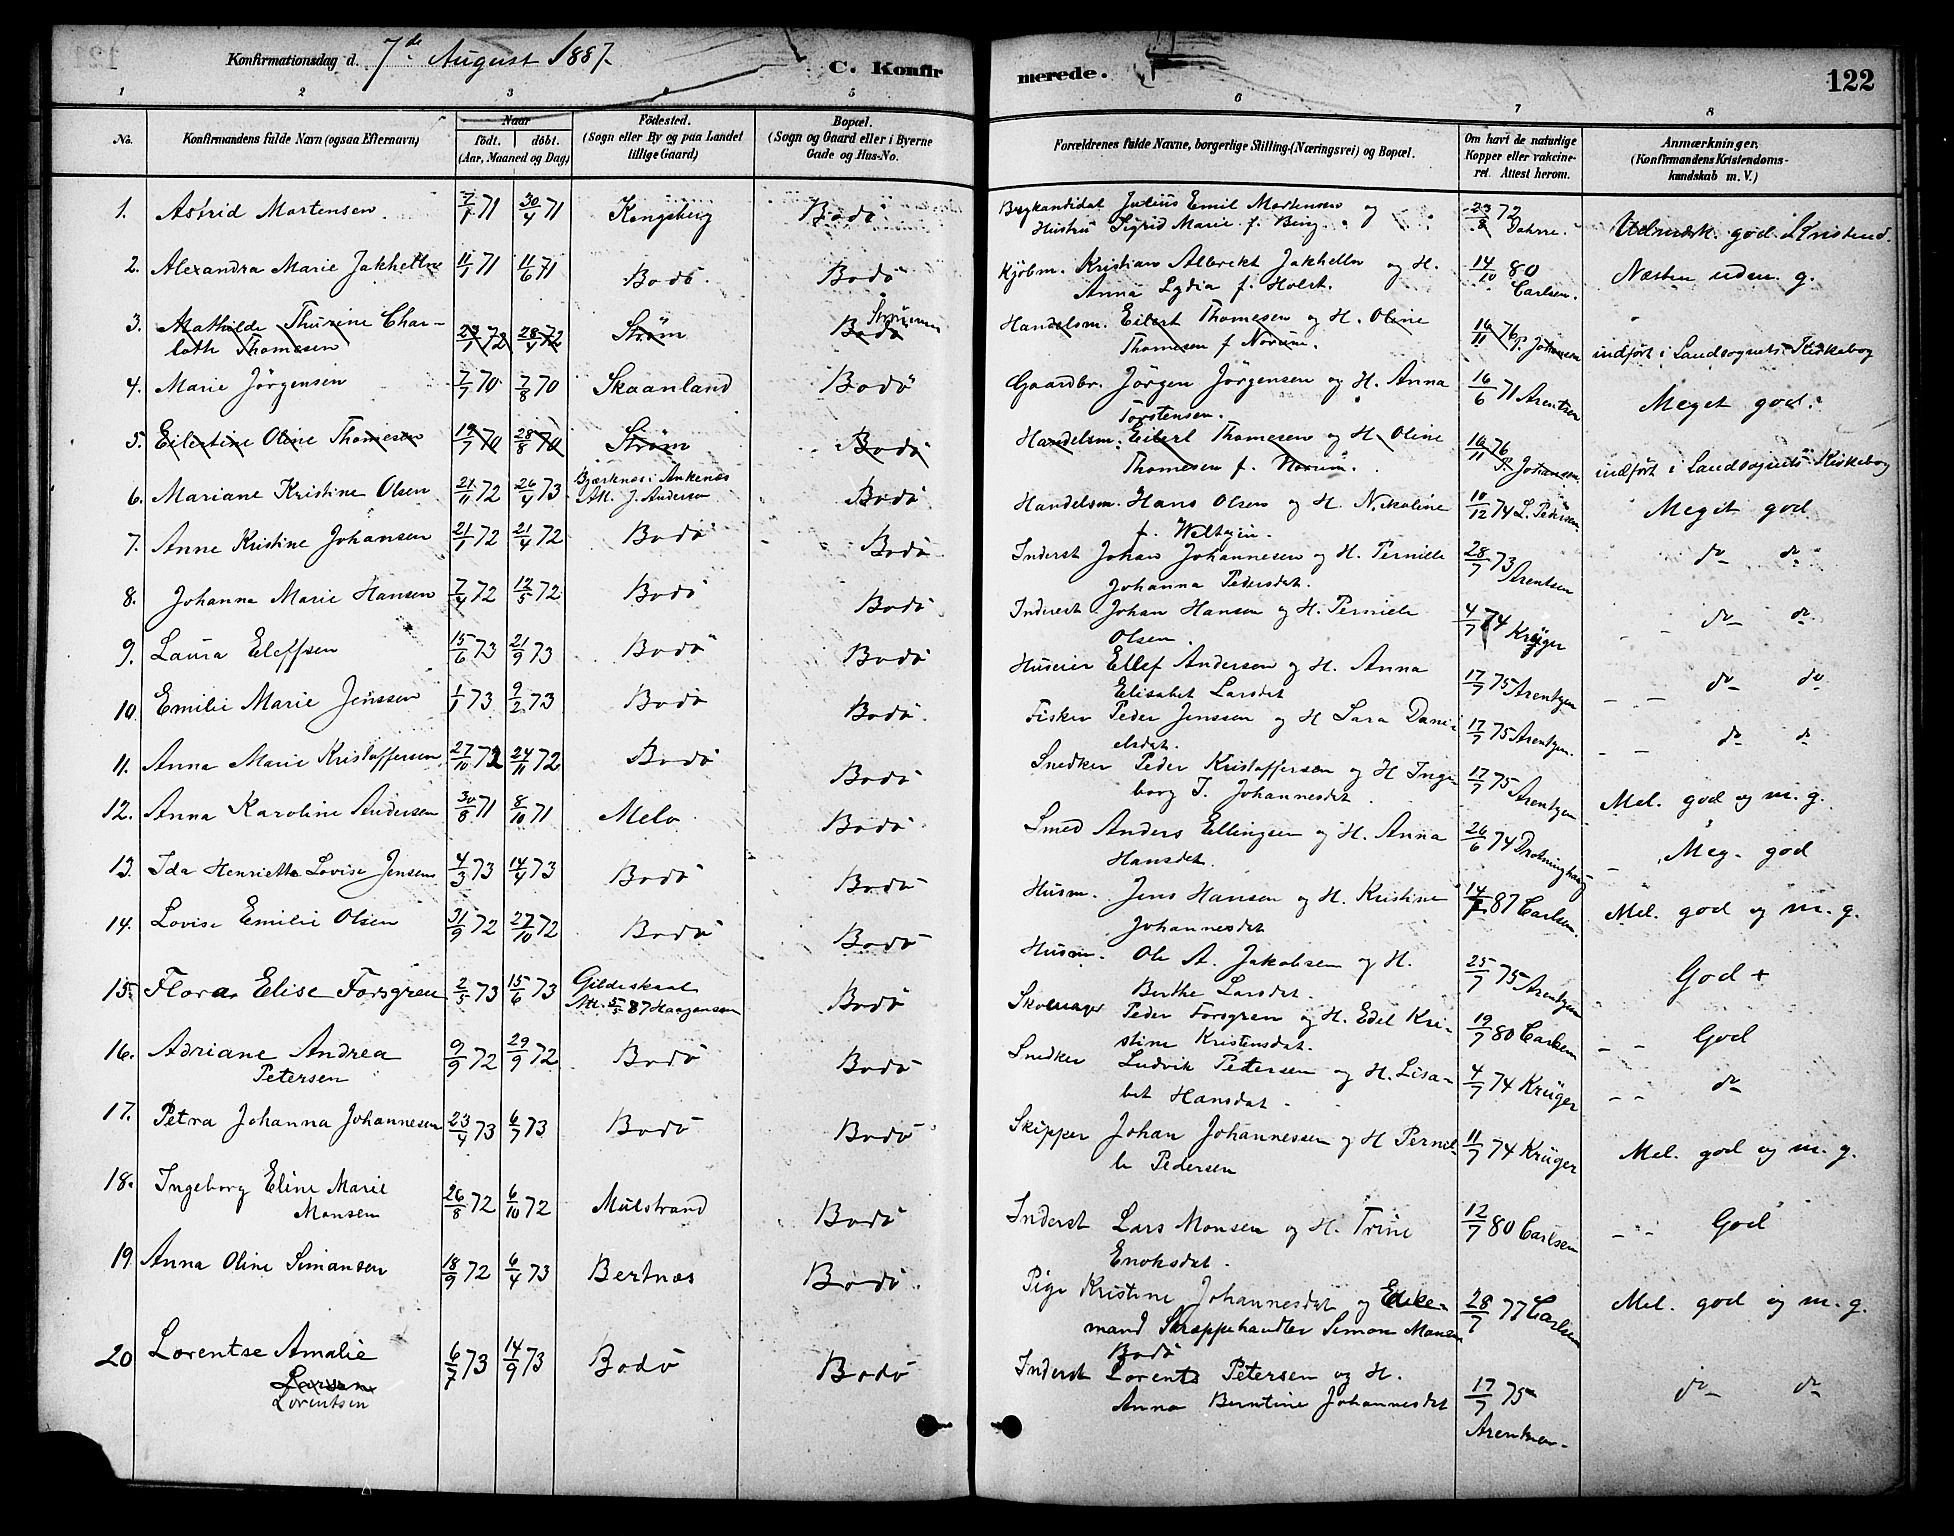 Konfirmationsdag d. 7de August 1887.
C. Konfirmerede.
122
1 2 3 4 5 6 7 8
No. Konfirmandens fulde Navn (ogsaa Efternavn) Naar født. døbt. (Aar, Maaned og Dag) Fødested. (Sogn eller By og paa Landet tillige Gaard) Bopæl. (Sogn og Gaard eller i Byerne Gade og Hus-No. Forældrenes fulde Navne, borgerlige Stilling (Næringsvei) og Bopæl. Om havt de naturlige Kopper eller vakcineret. Attest herom. Anmærkninger. (Konfirmandens Kristendomskundskab m. V.)
1. Astrid Mortensen 7/1 71 30/4 71 Kongsberg Bodö Julius Emil Mortensen og Hustru Sigrid Marie f. Berg. 23/8 72 Udmærk. god Kristend.
2. Alexandra Marie Jakhelln 11/1 71 11/6 71 Bodö Bodö Kjöbm. Kristian Albrekt Jakhelln og H. Anna Lydia f. Holst. 14/10 80 Carlsen. Næsten udm. g.
3. Mathilde Thurine Charloth Thomesen 29/1 72 28/4 72 Ström Bodö Strömmen Handelsm. Eilert Thomesen og H. Oline Thomesen f Norum. 16/11 76 P. Johansen indfört i Landsognets Kirkebog
4. Marie Jörgensen 7/7 70 7/8 70 Skaanland Bodö Gaardbr. Jörgen Jörgensen og H. Anna Torstensen. 16/6 71 Arentzen Meget god.
5. Eilertine Oline Thomesen 19/7 70 28/8 70 Ström Bodö Handelsm. Eilert Thomesen og H. Oline Thomesen f. Norum. 16/11 76 P. Johansen indfört i Landsognets Kirkebog
6. Mariane Kristine Olsen 21/11 72 26/4 73 Bjerknes i Ankenæs Att. J. Andersen Bodö Handelsm. Hans Olsen og H. Nikoline f. 10/12 74 L. Pedersen Meget god
7. Anne Kristine Johansen 21/1 72 21/4 72 Bodö Bodö Inderst Johan Johannesen og H. Pernille Johanna Pedersdat. 28/7 73 Arentsen do do
8. Johanna Marie Hansen 7/4 72 12/5 72 Bodö Bodö Inderst Johan Hansen og H. Pernille Olsen. 4/7 74 Krüger do do
9. Laura Eleffsen 15/6 73 21/9 73 Bodö Bodö Huseier Ellef Andersen og H. Anna Elisabet Larsdat 17/7 75 Arentzen do do
10. Emilie Marie Jenssen 1/1 73 9/2 73 Bodö Bodö. Fisker Peder Jenssen og H Sara Danielsdat. 17/7 75 Arentzen. do do
11. Anna Marie Kristoffersen 27/10 72 24/11 72 Bodö Bodö Snedker Peder Kristoffersen og H Ingeborg J. Johannesdat. 17/7 75 Arentzen Mel. god og m. g.
12. Anna Karoline Andersen 30/8 71 8/10 71 Melö Bodö Smed Anders Ellingsen og H. Anna Hansdat. 26/6 74 Drotninghaug Meg. god
13. Ida Henriette Lovise Jensen 4/3 73 14/4 73 Bodö Bodö Husm. Jens Hansen og H. Kristine Johannesdat 14/7 87 Carlsen. Mel. god og m. g.
14. Lovise Emilie Olsen 31/9 72 27/10 72 Bodö Bodö Husm. Ole A. Jakobsen og H. Berthe Larsdat. 25/7 75 Arentzen God +
15. Flora Elise Forsgren 2/5 73 15/6 73 Gildeskaal Att. 5/5 87 Haagensen Bodö Skomager Peder Forsgren og H. Edel Kristine Kristensdat. 19/7 80 Carlsen God
16. Adriane Andrea Petersen 9/9 72 29/9 72 Bodö Bodö Snedker Ludvik Petersen og H. Lisabet Hansdat. 4/7 74 Krüger do
17. Petra Johanna Johannesen 23/4 73 6/7 73 Bodö Bodö Skipper Johan Johannessen og H Pernille Pedersen 11/7 74 Krüger Mel. god og m. g.
18. Ingeborg Eline Marie Monsen 26/8 72 6/10 72 Mulstrand Bodö Inderst Lars Monsen og H. Trine Enoksdat. 12/7 80 Carlsen God
19 Anna Oline Simonsen 18/9 72 6/4 73 Bertnæs Bodö. Pige Kristine Johannesdat og Enkemand Skræppehandler Simon Monsen Bodö 28/7 77 Carlsen Mel. god og m. g.
20 Lorentse Amalie Larsen Lorentsen 6/7 73 14/9 73 Bodö Bodö Inderst Lorents Petersen og H. Anna Berntine Johannesdat 17/7 75 Arentzen. do do